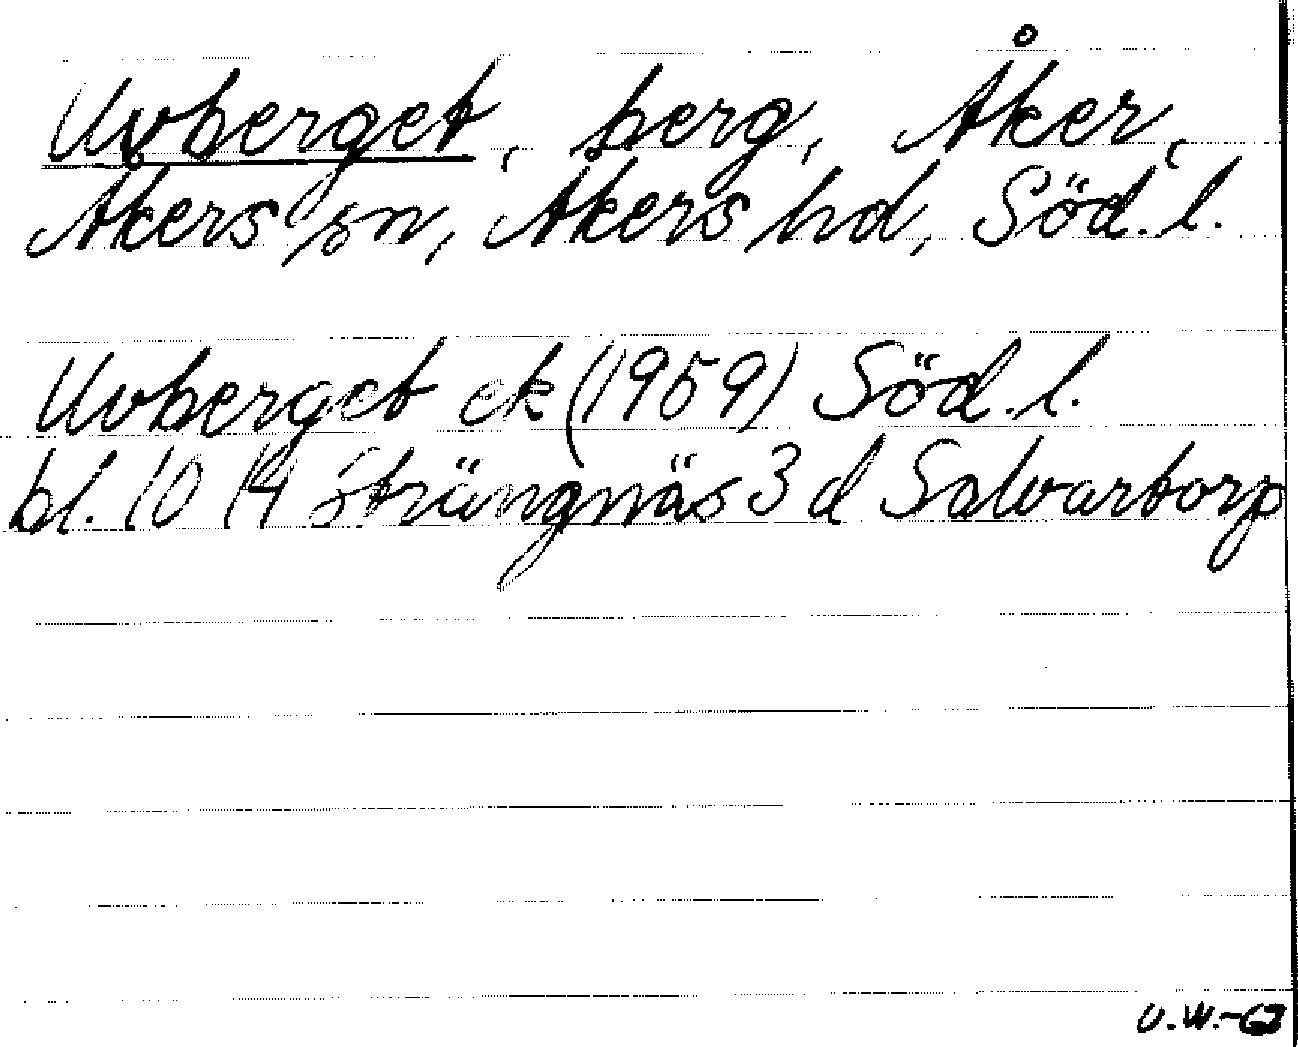 Uvberget, berg, Åker,
Åkers sn, Åkers hd, Söd. l.
Uvberget ek (1959) Söd. l.
bl. 10 H Strängnäs 3 d Salvartorp
U.W.-63